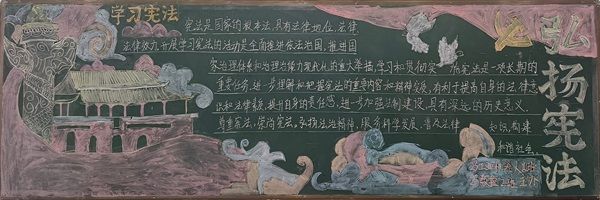 学习宪法
宪法是国家的根本法,具有法律地位、法律
法律效力开展学习宪法的活动是全面推进依法治国,推进国
家治理体系和治理能力现代化的重大举措,学习和贯彻实施宪法是一项长期的
重要任务,进一步理解和把握宪法的重要内容和精神发展,有利于提高自身的法律意
识和法律素质,提升自身的责任感,进一步加强法制建设,具有深远的历史意义
尊重宪法,崇尚宪法,弘扬法治精神,服务科学发展,普及法律知识,构建
和谐社会。
弘扬宪法